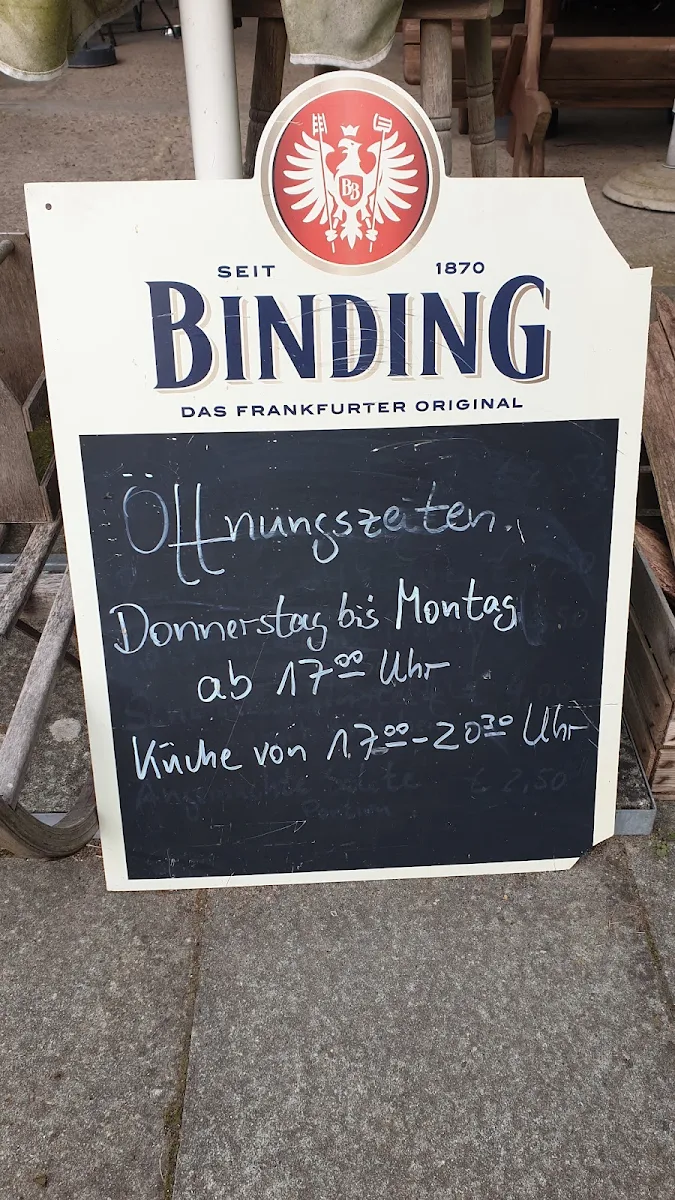 BB
SEIT 1870
BINDING
DAS FRANKFURTER ORIGINAL
Öffnungszeiten.
Donnerstag bis Montag
ab 17⁰⁰ Uhr
Küche von 17⁰⁰-20³⁰ Uhr
€ 2,50